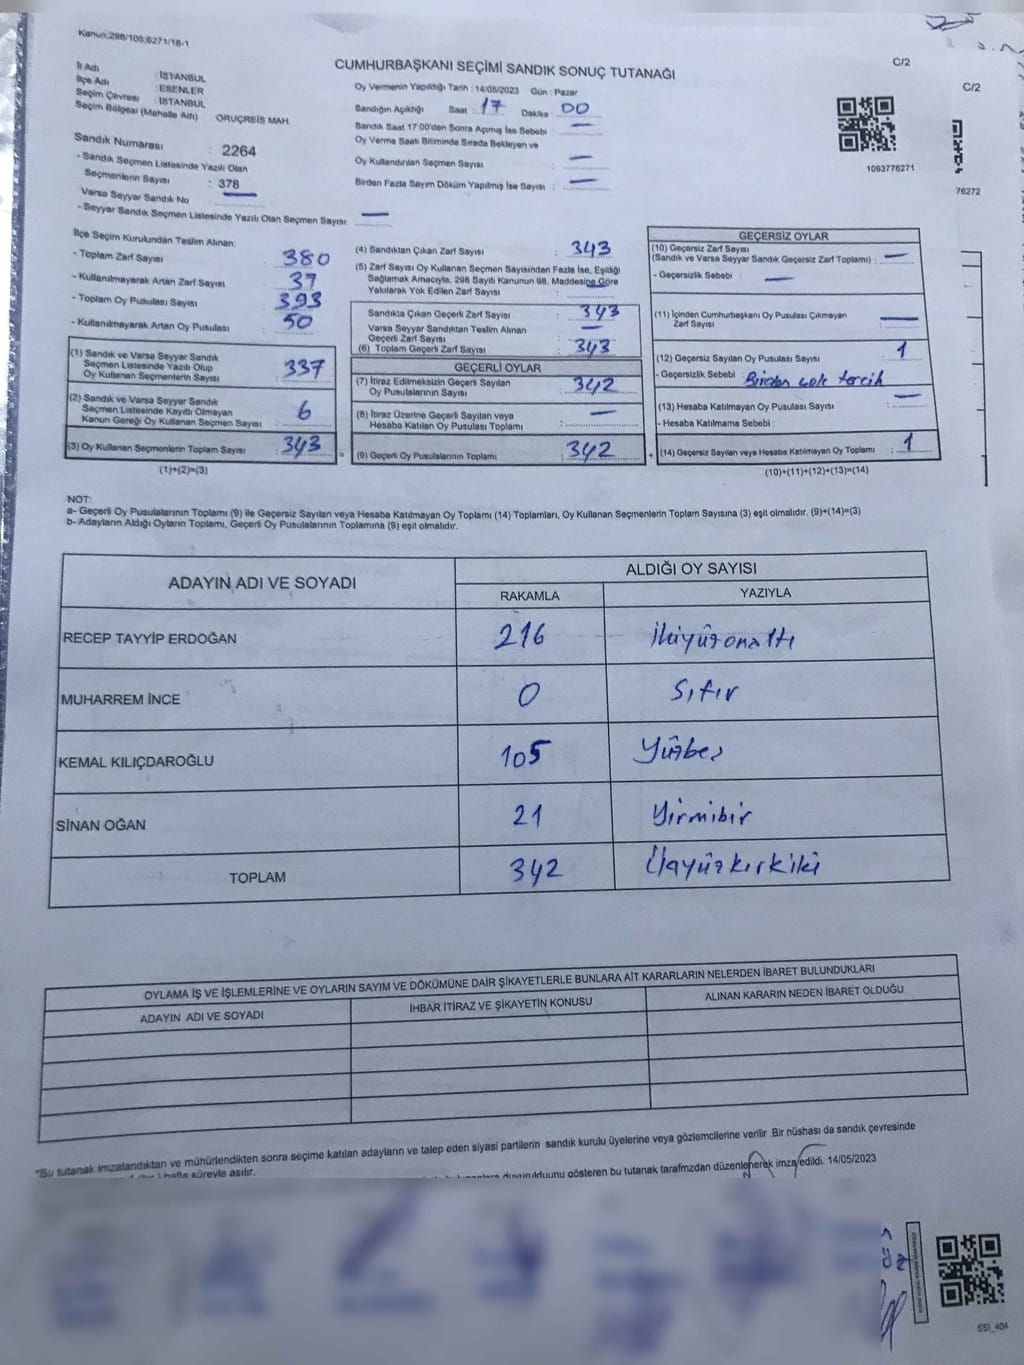 Kanun:298/105;6271/18-1
C/2
CUMHURBAŞKANI SEÇİMİ SANDIK SONUÇ TUTANAĞI
C/2
İl Adı : İSTANBUL
İlçe Adı : ESENLER
Seçim Çevresi : İSTANBUL
Seçim Bölgesi (Mahalle Adı) ORUÇREİS MAH.
Sandık Numarası : 2264
- Sandık Seçmen Listesinde Yazılı Olan
Seçmenlerin Sayısı : 378
Varsa Seyyar Sandık No
- Seyyar Sandık Seçmen Listesinde Yazılı Olan Seçmen Sayısı:
Oy Vermenin Yapıldığı Tarih : 14/05/2023 Gün : Pazar
Sandığın Açıldığı Saat : 17 Dakika : 00
Sandık Saat 17:00'den Sonra Açılmış İse Sebebi :
Oy Verme Saati Bitiminde Sırada Bekleyen ve
Oy Kullandırılan Seçmen Sayısı :
Birden Fazla Sayım Döküm Yapılmış İse Sayısı :
1093776271
76272
İlçe Seçim Kurulundan Teslim Alınan:
- Toplam Zarf Sayısı : 380
- Kullanılmayarak Artan Zarf Sayısı : 37
- Toplam Oy Pusulası Sayısı : 393
- Kullanılmayarak Artan Oy Pusulası : 50
(1) Sandık ve Varsa Seyyar Sandık
Seçmen Listesinde Yazılı Olup
Oy Kullanan Seçmenlerin Sayısı : 337
(2) Sandık ve Varsa Seyyar Sandık
Seçmen Listesinde Kayıtlı Olmayan
Kanun Gereği Oy Kullanan Seçmen Sayısı : 6
(3) Oy Kullanan Seçmenlerin Toplam Sayısı : 343
(1)+(2)=(3)
(4) Sandıktan Çıkan Zarf Sayısı : 343
(5) Zarf Sayısı Oy Kullanan Seçmen Sayısından Fazla İse, Eşitliği
Sağlamak Amacıyla, 298 Sayılı Kanunun 98. Maddesine Göre
Yakılarak Yok Edilen Zarf Sayısı :
Sandıkta Çıkan Geçerli Zarf Sayısı : 343
Varsa Seyyar Sandıktan Teslim Alınan
Geçerli Zarf Sayısı :
(6) Toplam Geçerli Zarf Sayısı : 343
GEÇERLİ OYLAR
(7) İtiraz Edilmeksizin Geçerli Sayılan
Oy Pusulalarının Sayısı : 342
(8) İtiraz Üzerine Geçerli Sayılan veya
Hesaba Katılan Oy Pusulası Toplamı :
(9) Geçerli Oy Pusulalarının Toplamı : 342
GEÇERSİZ OYLAR
(10) Geçersiz Zarf Sayısı
(Sandık ve Varsa Seyyar Sandık Geçersiz Zarf Toplamı) :
- Geçersizlik Sebebi :
(11) İçinden Cumhurbaşkanı Oy Pusulası Çıkmayan
Zarf Sayısı :
(12) Geçersiz Sayılan Oy Pusulası Sayısı : 1
- Geçersizlik Sebebi : Birden çok tercih
(13) Hesaba Katılmayan Oy Pusulası Sayısı :
- Hesaba Katılmama Sebebi :
(14) Geçersiz Sayılan veya Hesaba Katılmayan Oy Toplamı : 1
(10)+(11)+(12)+(13)=(14)
NOT:
a- Geçerli Oy Pusulalarının Toplamı (9) ile Geçersiz Sayılan veya Hesaba Katılmayan Oy Toplamı (14) Toplamları, Oy Kullanan Seçmenlerin Toplam Sayısına (3) eşit olmalıdır. (9)+(14)=(3)
b- Adayların Aldığı Oyların Toplamı, Geçerli Oy Pusulalarının Toplamına (9) eşit olmalıdır.
ADAYIN ADI VE SOYADI ALDIĞI OY SAYISI
RAKAMLA YAZIYLA
RECEP TAYYİP ERDOĞAN 216 İkiyüzonaltı
MUHARREM İNCE 0 Sıfır
KEMAL KILIÇDAROĞLU 105 Yüzbeş
SİNAN OĞAN 21 Yirmibir
TOPLAM 342 Üçyüzkırkiki
OYLAMA İŞ VE İŞLEMLERİNE VE OYLARIN SAYIM VE DÖKÜMÜNE DAİR ŞİKAYETLERLE BUNLARA AİT KARARLARIN NELERDEN İBARET BULUNDUKLARI
ADAYIN ADI VE SOYADI İHBAR İTİRAZ VE ŞİKAYETİN KONUSU ALINAN KARARIN NEDEN İBARET OLDUĞU
*Bu tutanak imzalandıktan ve mühürlendikten sonra seçime katılan adayların ve talep eden siyasi partilerin sandık kurulu üyelerine veya gözlemcilerine verilir .Bir nüshası da sandık çevresinde
hafta süreyle asılır.
gösteren bu tutanak tarafımzdan düzenlenerek imza edildi. 14/05/2023
SSI_404